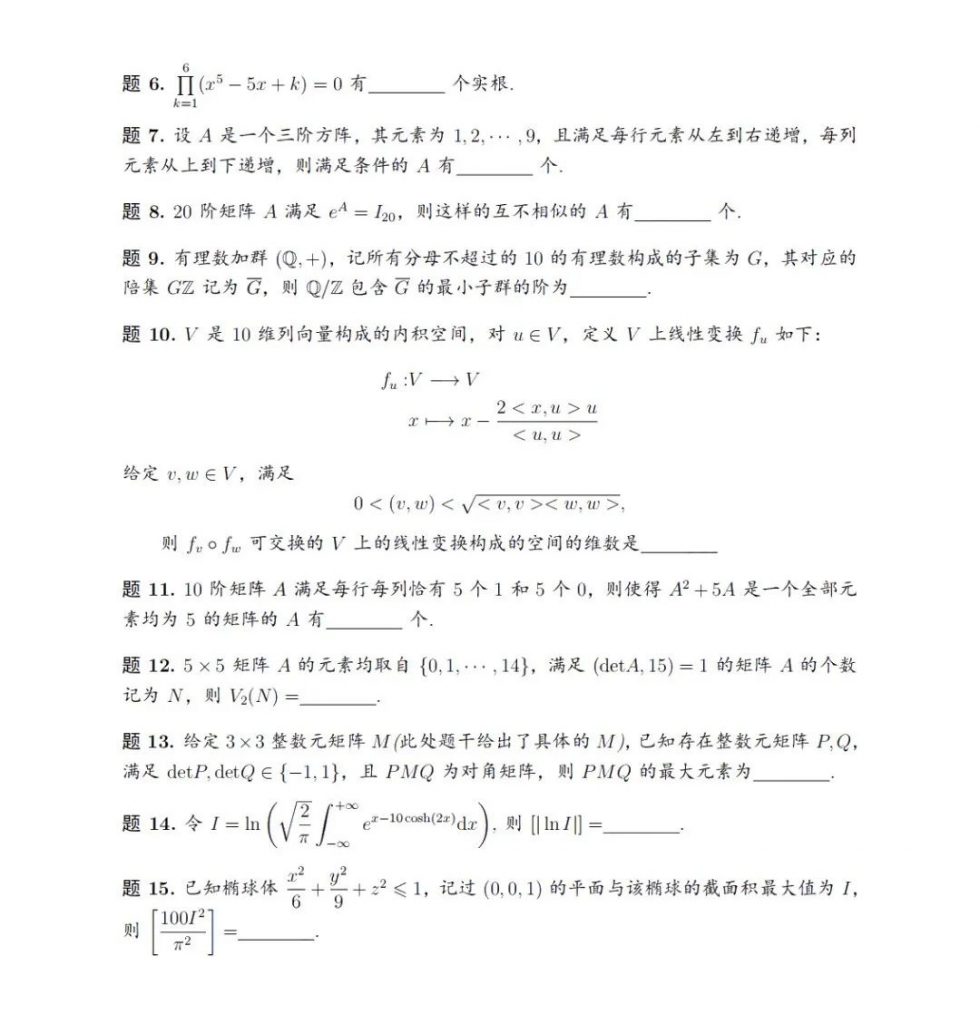 题 6. $\prod_{k=1}^{6}(x^5 - 5x + k) = 0$ 有________ 个实根.
题 7. 设 $A$ 是一个三阶方阵，其元素为 $1, 2, \cdots, 9$，且满足每行元素从左到右递增，每列
元素从上到下递增，则满足条件的 $A$ 有________ 个.
题 8. 20 阶矩阵 $A$ 满足 $e^A = I_{20}$，则这样的互不相似的 $A$ 有________ 个.
题 9. 有理数加群 $(\mathbb{Q}, +)$，记所有分母不超过的 10 的有理数构成的子集为 $G$，其对应的
陪集 $G\mathbb{Z}$ 记为 $\overline{G}$，则 $\mathbb{Q}/\mathbb{Z}$ 包含 $\overline{G}$ 的最小子群的阶为________.
题 10. $V$ 是 10 维列向量构成的内积空间，对 $u \in V$，定义 $V$ 上线性变换 $f_u$ 如下：
$f_u : V \longrightarrow V$
$x \longmapsto x - \frac{2 < x, u > u}{< u, u >}$
给定 $v, w \in V$，满足
$0 < (v, w) < \sqrt{< v, v >< w, w >},$
则 $f_v \circ f_w$ 可交换的 $V$ 上的线性变换构成的空间的维数是________
题 11. 10 阶矩阵 $A$ 满足每行每列恰有 5 个 1 和 5 个 0，则使得 $A^2 + 5A$ 是一个全部元
素均为 5 的矩阵的 $A$ 有________ 个.
题 12. $5 \times 5$ 矩阵 $A$ 的元素均取自 $\{0, 1, \cdots, 14\}$，满足 $(\det A, 15) = 1$ 的矩阵 $A$ 的个数
记为 $N$，则 $V_2(N) =$________.
题 13. 给定 $3 \times 3$ 整数元矩阵 $M$(此处题干给出了具体的 $M$)，已知存在整数元矩阵 $P, Q$，
满足 $\det P, \det Q \in \{-1, 1\}$，且 $PMQ$ 为对角矩阵，则 $PMQ$ 的最大元素为________.
题 14. 令 $I = \ln \left( \sqrt{\frac{2}{\pi}} \int_{-\infty}^{+\infty} e^{x - 10\cosh(2x)} \mathrm{d}x \right)$，则 $[|\ln I|] =$________.
题 15. 已知椭球体 $\frac{x^2}{6} + \frac{y^2}{9} + z^2 \leqslant 1$，记过 $(0, 0, 1)$ 的平面与该椭球的截面积最大值为 $I$，
则 $\left[ \frac{100I^2}{\pi^2} \right] =$________.